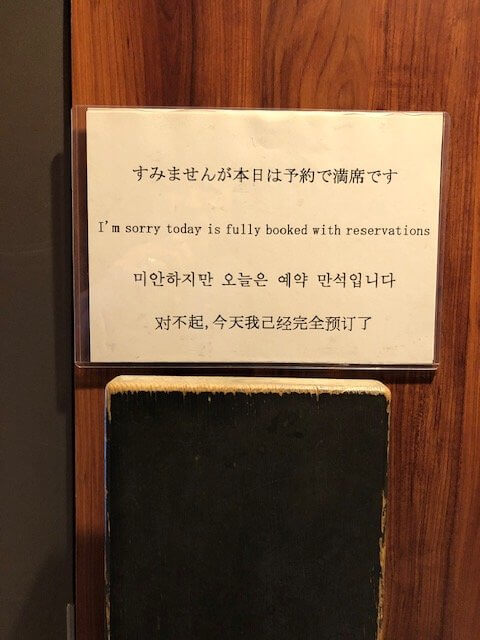 すみませんが本日は予約で満席です
I'm sorry today is fully booked with reservations
미안하지만 오늘은 예약 만석입니다
对不起,今天我已经完全预订了